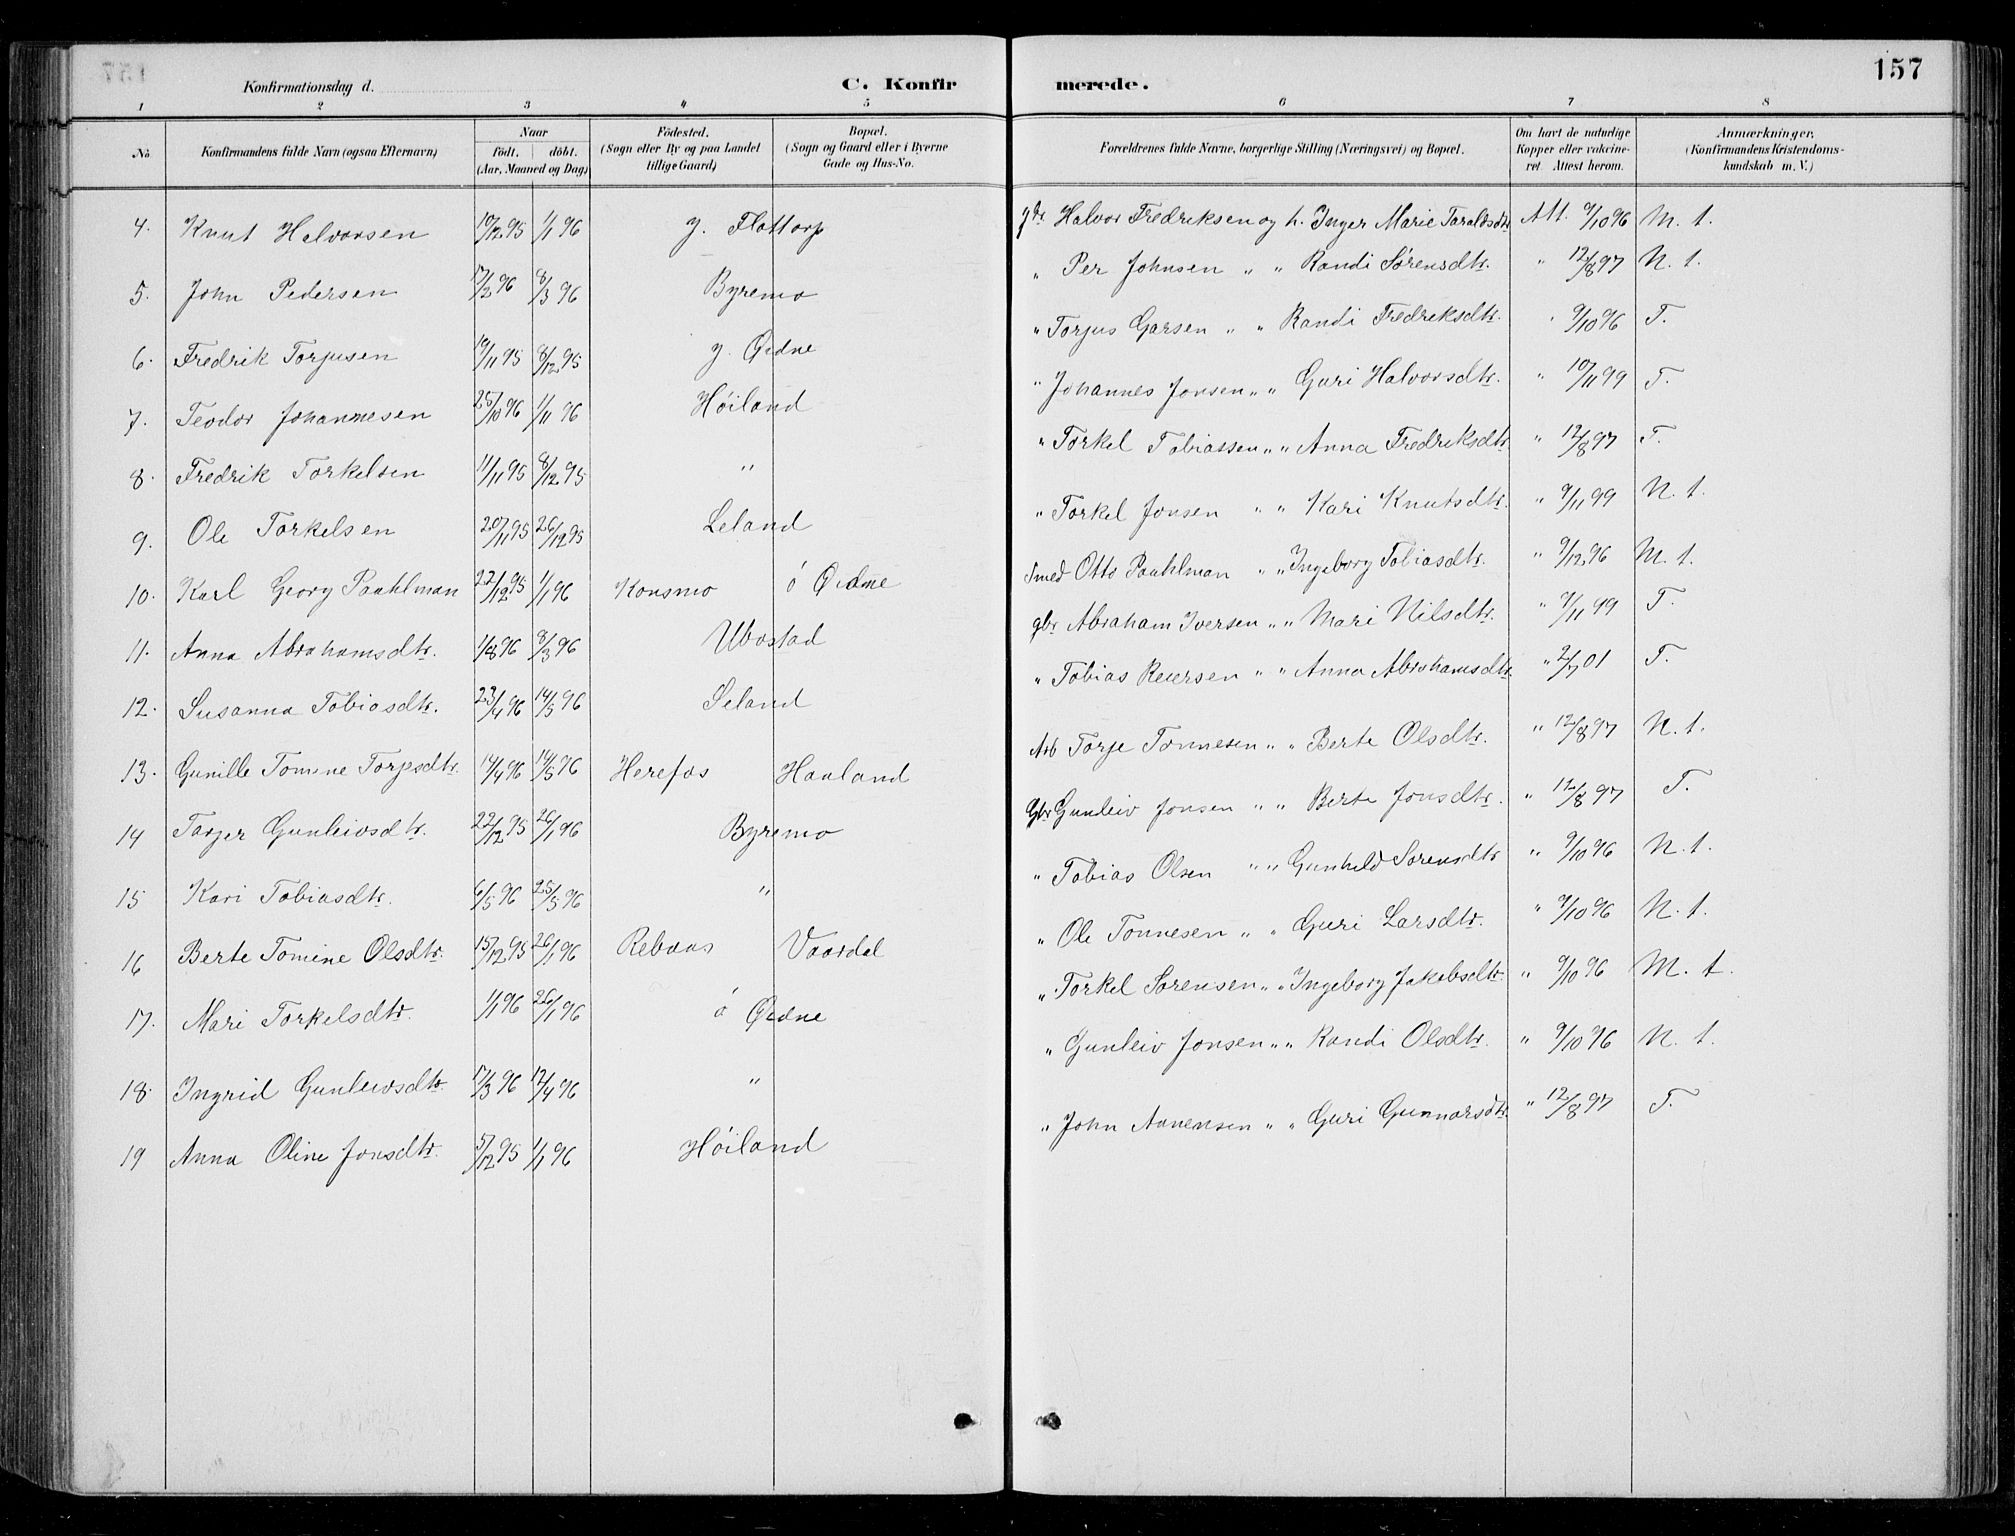 157
Konfirmationsdag d.
C. Konfirmerede.
1 2 3 4 5 6 7 8
No
Konfirmandens fulde Navn (ogsaa Efternavn)
Naar
födt. döbt.
(Aar, Maaned og Dag)
Födested.
(Sogn eller By og paa Landet
tillige Gaard)
Bopæl.
(Sogn og Gaard eller i Byerne
Gade og Hus-No.
Forældrenes fulde Navne, borgerlige Stilling (Næringsvei) og Bopæl.
Om havt de naturlige
Kopper eller vakcine-
ret. Attest herom.
Anmærkninger.
(Konfirmandens Kristendoms-
kundskab m. V.)
4. Knut Halvorsen 10/12 95 1/1 96 y. Flottorp gbr Halvor Fredriksen og h. Inger Marie Taraldsdtr Att. 9/10 96 M. t.
5. John Pedersen 17/2 96 8/3 96 Byremo " Per Johnsen " " Randi Sörensdtr. " 12/8 97 N. t.
6. Fredrik Torjusen 19/11 95 8/12 95 y. Öidne " Torjus Garsen " " Randi Fredriksdtr. " 9/10 96 T.
7. Teodor Johannesen 25/10 96 1/11 96 Höiland " Johannes Jonsen " " Guri Halvorsdtr. " 10/11 99 T.
8. Fredrik Torkelsen 11/11 95 8/12 95 " " Torkel Tobiassen " " Anna Fredriksdtr " 12/8 97 T.
9. Ole Torkelsen 20/11 95 26/12 95 Leland " Torkel Jonsen " " Kari Knutsdtr. " 9/11 99 N. t.
10. Karl Georg Paahlman 22/12 95 1/1 96 Konsmo ö Öidne Smed Otto Paahlman " " Ingeborg Tobiasdtr. " 9/12 96 M. t.
11. Anna Abrahamsdtr. 1/8 96 8/3 96 Ubostad gbr Abraham Iversen " " Mari Nilsdtr. " 9/11 99 T.
12. Susanna Tobiasdtr. 23/4 96 14/5 96 Seland " Tobias Reiersen " " Anna Abrahamsdtr. " 2/7 01 T.
13. Gunille Tomine Torjesdtr. 14/4 96 14/5 96 Herefos Haaland Arb Torje Tönnesen " " Berte Olsdtr. " 12/8 97 N. t.
14 Tarjer Gunleivsdtr. 22/12 95 26/1 96 Byremo Gbr Gunleiv Jonsen " " Berte Jonsdtr. " 12/8 97 T.
15 Kari Tobiasdtr. 6/5 96 25/5 96 " " Tobias Olsen " " Gunhild Sörensdtr " 9/10 96 N. t.
16 Berte Tomine Olsdtr. 15/12 95 26/1 96 Rebaas Vaardal " Ole Tönnesen " " Guri Larsdtr. " 9/10 96 N. t.
17. Mari Torkelsdtr. 1/1 96 26/1 96 ö Öidne " Torkel Sörensen " " Ingeborg Jakobsdtr. " 9/10 96 M. t.
18. Ingrid Gunleivsdtr. 17/3 96 12/4 96 " " Gunleiv Jonsen " " Randi Olsdtr. " 9/10 96 N. t.
19 Anna Oline Jonsdtr. 5/12 95 1/1 96 Höiland " John Aanensen " " Guri Gunnarsdtr. " 12/8 97 T.